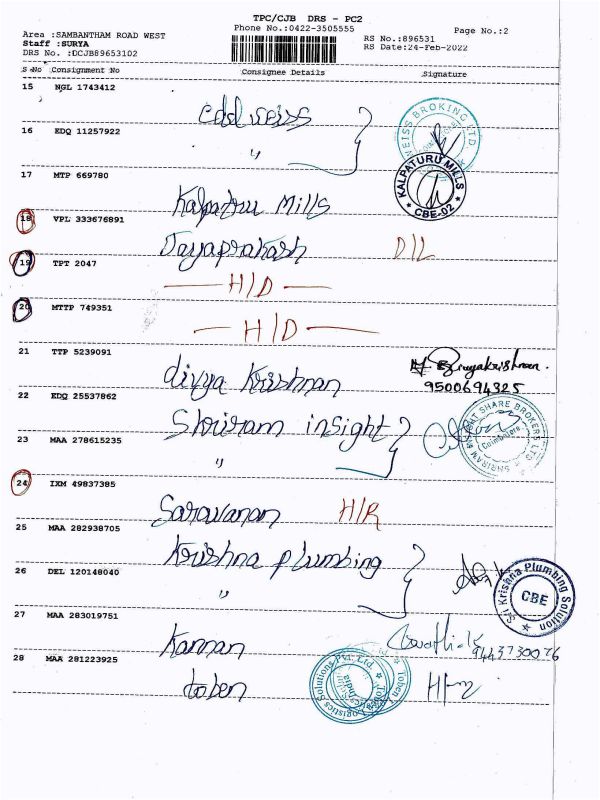 TPC/CJB DRS - PC2
Phone No.:0422-3505555
Page No.:2
Area :SAMBANTHAM ROAD WEST
RS No.:896531
Staff :SURYA
RS Date:24-Feb-2022
DRS No. :DCJB89653102
S No Consignment No Consignee Details Signature
15 NGL 1743412
Edelweiss
16 EDQ 11257922
"
WEISS BROKING LTD
17 MTP 669780
Kalpatru Mills
KALPATURU MILLS
CBE-02
18 VPL 333676891
Jayaprakash D/L
19 TPT 2047
H/D
20 MTTP 749351
H/D
21 TTP 5239091
divya Krishnan
9500694325
22 EDQ 25537862
Shriram insight
23 MAA 278615235
"
SHRIRAM INSIGHT SHARE BROKERS LTD
Coimbatore
24 IXM 49837385
Saravanan H/R
25 MAA 282938705
Krishna plumbing
26 DEL 120148040
"
Sri Krishna Plumbing Solution
CBE
27 MAA 283019751
Kannan
9443730076
28 MAA 281223925
toben
Toben Logistics Solutions Pvt. Ltd.
India